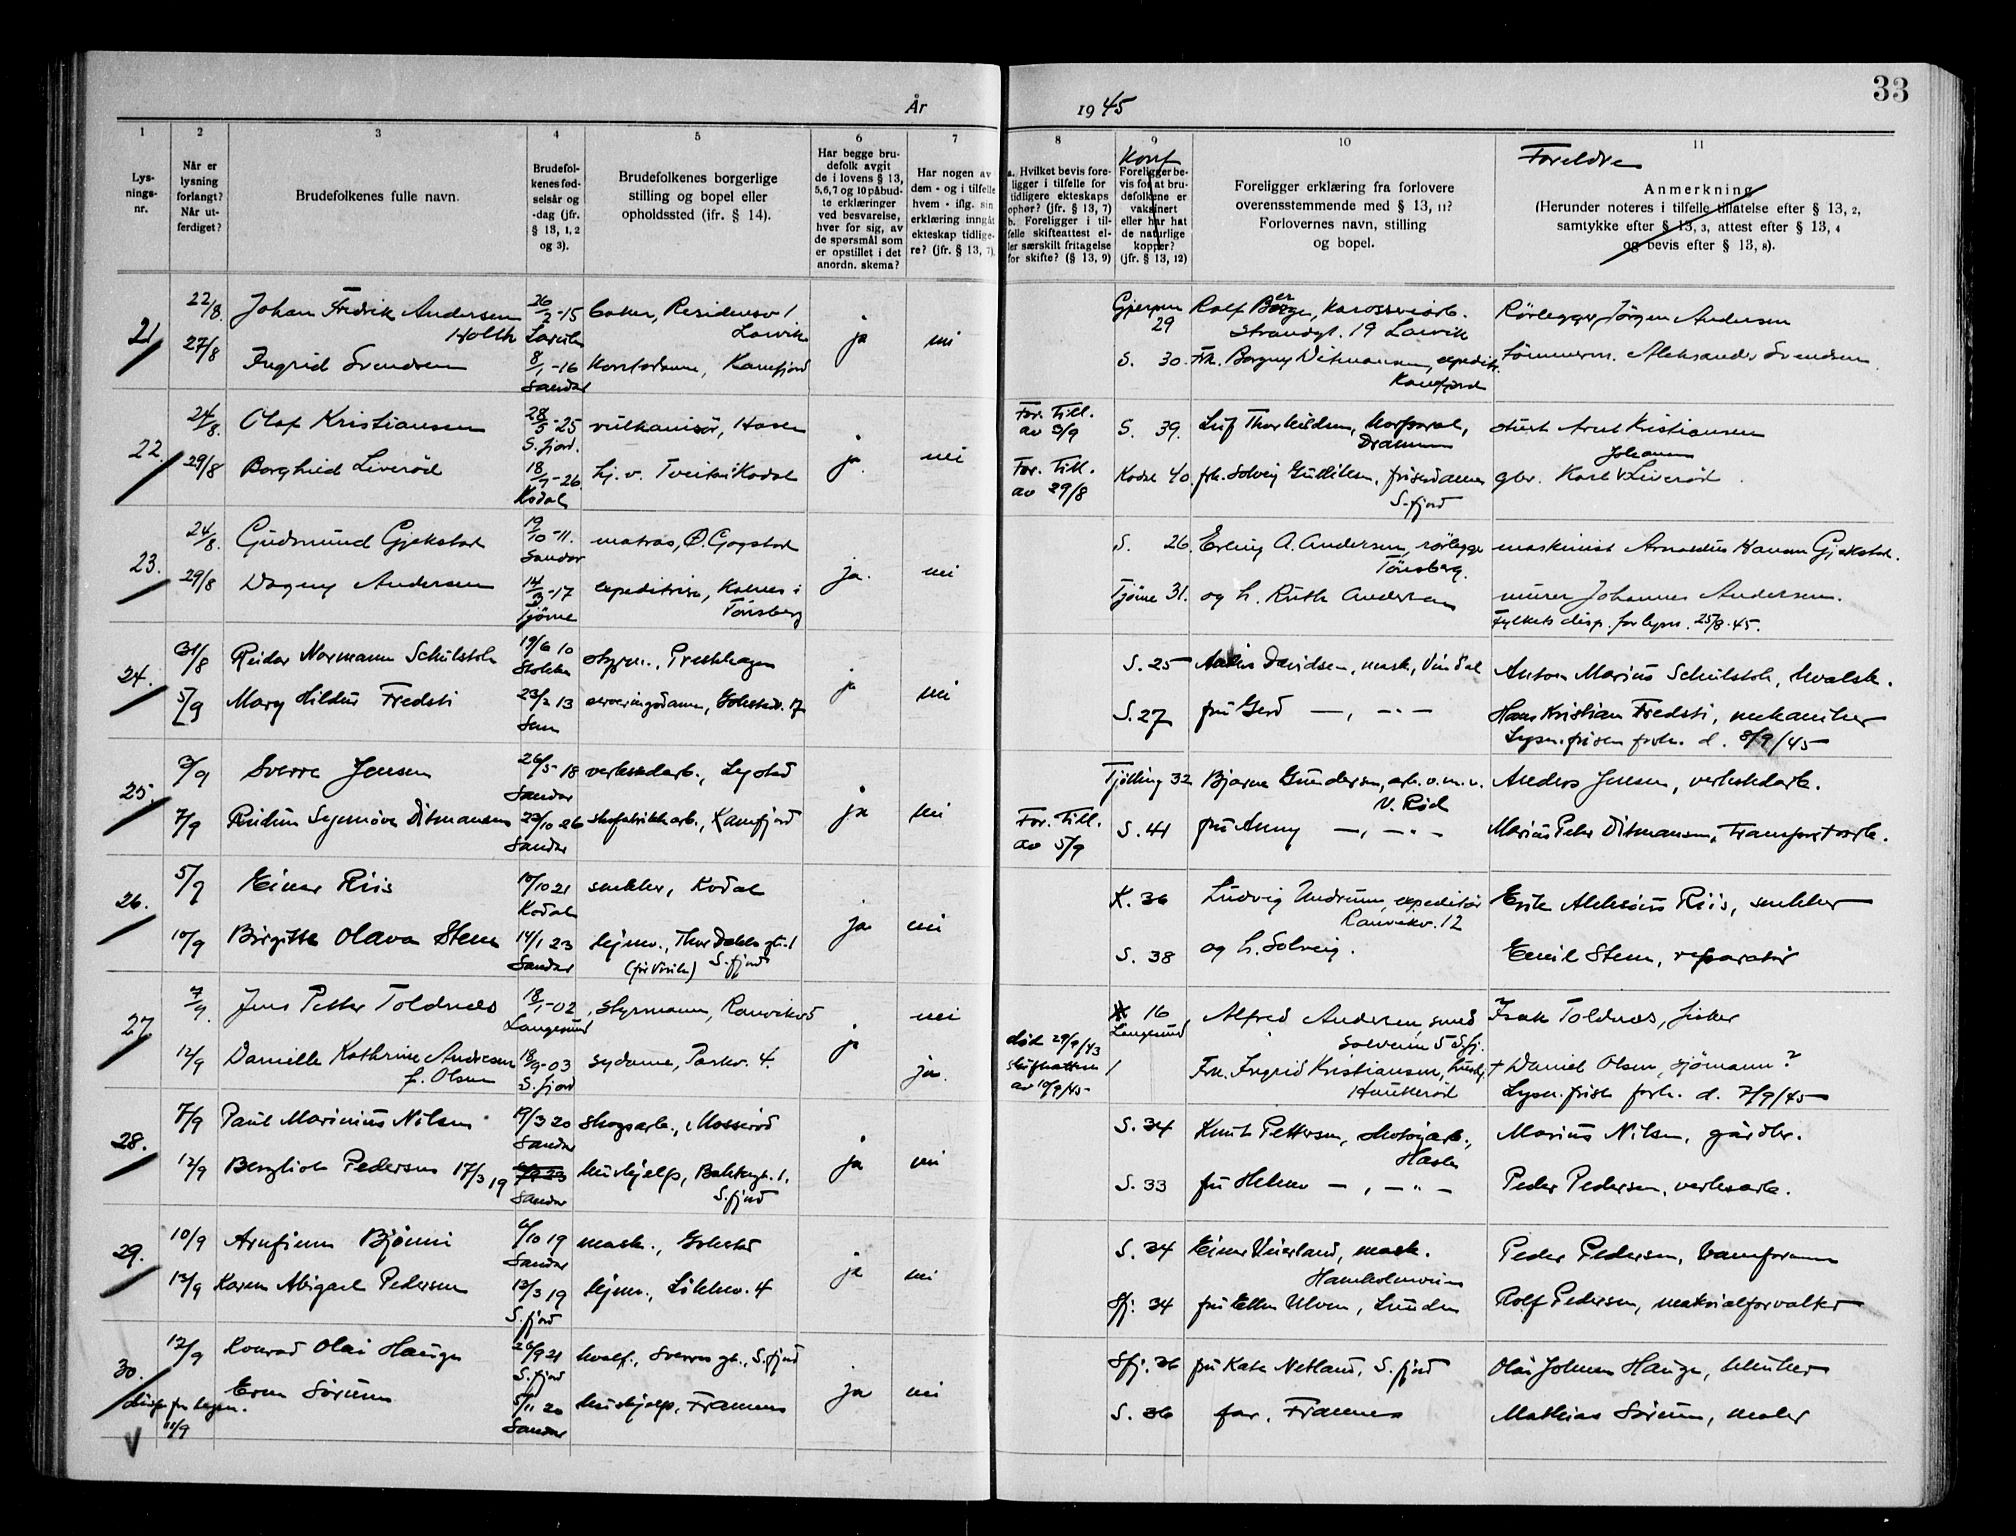 33
År
1945
1
2
3
4
5
6
7
8
9
10
11
Lys-
nings-
nr.
Når er
lysning
forlangt?
Når ut-
ferdiget?
Brudefolkenes fulle navn.
Brudefol-
kenes fød-
selsår og
-dag (jfr.
§ 13, 1, 2
og 3).
Brudefolkenes borgerlige
stilling og bopel eller
opholdssted (ifr. § 14).
Har begge bru-
defolk avgit
de i lovens § 13,
5,6,7 og 10 påbud-
te erklæringer
ved besvarelse,
hver for sig, av
de spørsmål som
er opstillet i det
anordn. skema?
Har nogen av
dem - og i tilfelle
hvem - iflg. sin
erklæring inngått
ekteskap tidlige-
re? (jfr. § 13, 7).
a. Hvilket bevis fore-
ligger i tilfelle for
tidligere ekteskaps
ophør? (jfr. § 13, 7)
b. Foreligger i til-
felle skifteattest el-
ler særskilt fritagelse
for skifte? (§ 13, 9)
Konf
Foreligger be-
vis for at bru-
defolkene er
vaksinert
eller har hat
de naturlige
kopper?
(jfr. § 13, 12)
Foreligger erklæring fra forlovere
overensstemmende med § 13, 11?
Forlovernes navn, stilling
og bopel.
Foreldre
Anmerkning
(Herunder noteres i tilfelle tillatelse efter § 13, 2,
samtykke efter § 13, 3, attest efter § 13, 4
og bevis efter § 13, 8).
21
22/8. Johan Fredrik Andersen 26/2-15 baker, Residensv 1 Gjerpen Rolf Berge, Strandgt. 19 Larvik Rørlegger Jørgen Andersen
Holth Larvik Larvik ja nei 29
27/8 Ingrid Svendsen 8/1-16 Kontordame, Kamfjord S. 30. Frk. Borgny Ditmansen, expeditr. Tømmerm. Aleksander Svendsen
Sandar Kamfjord
22. 24/8. Olaf Kristiansen 28/5-25 vulkanisør, Hasen For. Till. av 3/9 S. 39. Drammen Arnt Kristiansen
S.fjord. ja nei Johannes
29/8 Borghild Liverød 18/7-26 hj. v. Tveiten Kodal For. Till. av 29/8 Kodal 40. frk. Solveig Gulliksen, frisørdame gbr. Karl Liverød
Kodal S.fjord
23. 24/8. Gudmund Gjekstad 19/10-11. matros, Ø. Gogstad S. 26. Erling A. Andersen, rørlegger maskinist Arnoldus Hansen Gjekstad.
Sandar ja. nei Tønsberg.
29/8 Dagny Andersen 14/3-17 expeditrise, Kalnes i Tjøme 31. og h. Ruth Andersen murer Johannes Andersen.
Tjøme Tønsberg Fylkets disp. for lysn. 25/8-45.
24. 31/8 Reidar Normann Schulstok 19/6 10 styrm., Prestehagen S. 25 Davidsen, mask, Vindal Anton Marius Schulstok, hvalsk.
Stokke ja nei
5/9 Mary Hildur Fredsti 23/2 13 serveringsdame, Gokstadv. 17 S. 27 fru Gerd —, —"— Hans Kristian Fredsti, mekaniker
Sem Lysn.fristen fork. d. 8/9/45
25. 3/9 Sverre Jensen 26/5 18 verkstedarb., Lystad Tjølling 32 Bjarne Gundersen, arb. o.m.v. Anders Jensen, verkstedarb.
Sandar ja nei V. Rød
7/9 Reidun Synnøve Ditmansen 22/10 26 skofabrikkarb., Kamfjord For. Till. av 5/9 S. 41 fru Anny —, —"— Marius Peder Ditmansen, transportarb.
Sandar
26. 5/9 Einar Riis 10/10 21 snekker, Kodal K. 36 Ludvig Undrum, expeditør Erik Aleksius Riis, snekker
Kodal ja nei Ranvikv. 12
10/9 Birgitte Olava Steen 14/1 23 hjemv., Thor Dahls gt. 1 S. 38 og h. Solveig. Emil Steen, reparatør
Sandar S.fjord
27 7/9. Jens Petter Toldnes 18/1-02 Styrmann, Ranvik 16 Alfred Andersen, smed Isak Toldnes, fisker
Langesund nei Langesund Solveien 5 S.fj.
12/9 Danielle Kathrine Andresen 18/9-03 sydame, Parkv. 4. ja ja. død 29/9/43 Frk. Ingrid Kristiansen, + Daniel Olsen, sjømann?
f. Olsen S.fjord skifteattest av 10/9/45 Haukerød Lysn.frist fork. d. 7/9/45
28. 7/9 Paul Marinius Nilsen 19/3 20 Skogsarb., Mosserød S. 34 Knut Pettersen, Marius Nilsen, gårdbr.
Sandar ja nei Hasle
12/9 Bergliot Pedersen 17/3 19 Hushjelp, S. 33 fru Helene —, —"— Peder Pedersen, verksarb.
Sandar S.fjord
29. 10/9 Arnfinn Bjønni 6/10 19 mask., Gokstad S. 34 Einar Veierland, mask. Peder Pedersen,
Sandar ja nei Hamkolmveien
13/9 Karen Abigael Pedersen 13/3 19 hjemv., Løkkev. 4 Sfj. 34 fru Ellen Ulven, Lunden Rolf Pedersen, materialforvalter
S.fjord
30. 12/9 Konrad Olai Hauge 26/9 21 hvalf., Sverres gt., S.fjord Sfj. 36 fru Kate Netland, S.fjord Olai Johan Hauge,
S.fjord ja nei
Eva Sørum 5/11 20 Hushjelp, Framnes S. 36 far, Framnes Mathias Sørum, maler
11/9 Sandar